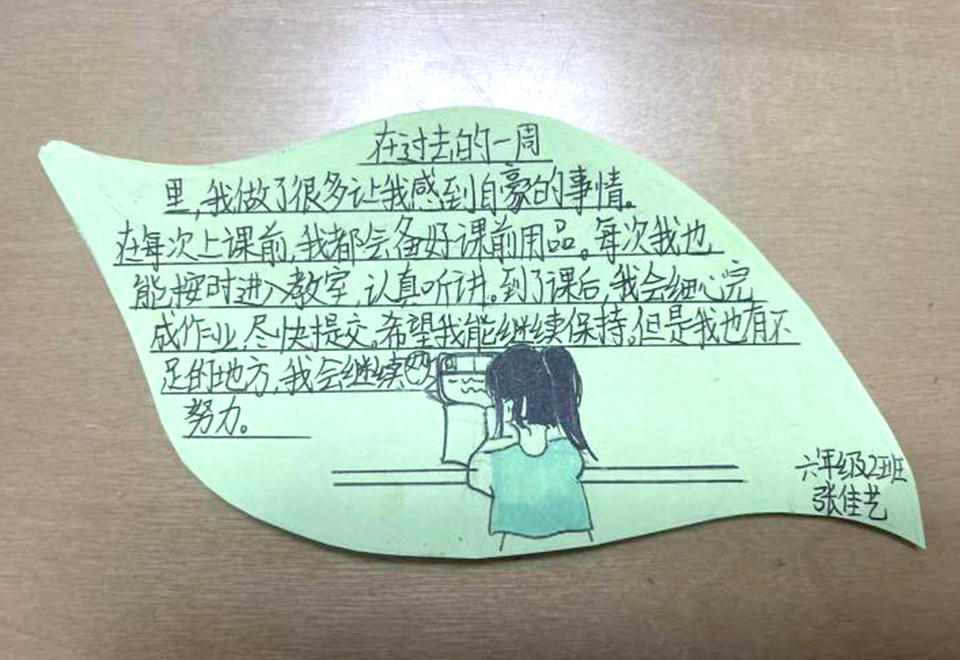 在过去的一周
里,我做了很多让我感到自豪的事情。
在每次上课前,我都会备好课前用品。每次我也
能按时进入教室,认真听讲。到了课后,我会细心完
成作业,尽快提交。希望我能继续保持。但是我也有不
足的地方,我会继续
努力。
六年级2班
张佳艺